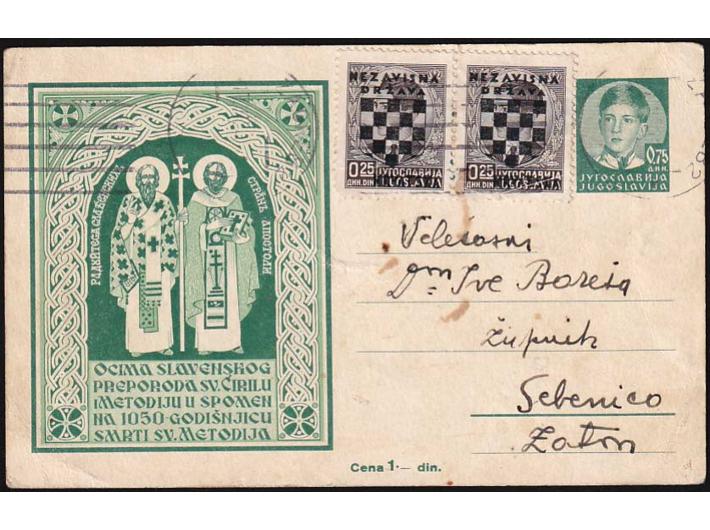 РАДꙊЙТЕСА СЛАВЕНСКИХЪ
СТРАНЪ АПОСТОЛИ
OCIMA SLAVENSKOG
PREPORODA SV. ĆIRILU
I METODIJU U SPOMEN
NA 1050-GODIŠNJICU
SMRTI SV. METODIJA
NEZAVISNA
DRŽAVA
0.25
ДИН. DIN.
ЈУГОСЛАВИЈА
NEZAVISNA
DRŽAVA
0.25
ДИН. DIN.
ЈУГОСЛАВИЈА
0,75
ДИН.
ЈУГОСЛАВИЈА
JUGOSLAVIJA
Dm Ive
Župnik
Sebenico
Zaton
Cena 1·— din.